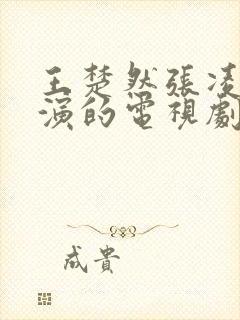 王楚然張凌
演的電視劇
成貴